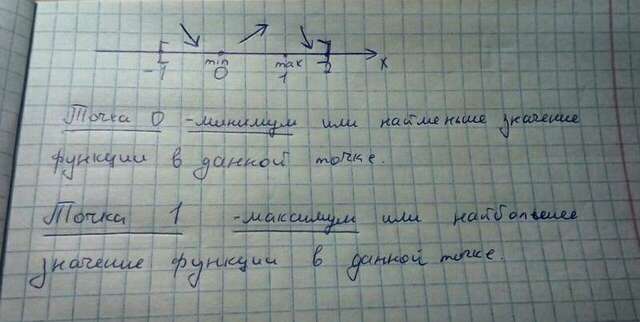 min max
-1 0 1 2 x
Точка 0 - минимум или найменьше значение
функции в данной точке.
Точка 1 - максимум или наибольшее
значение функции в данной точке.